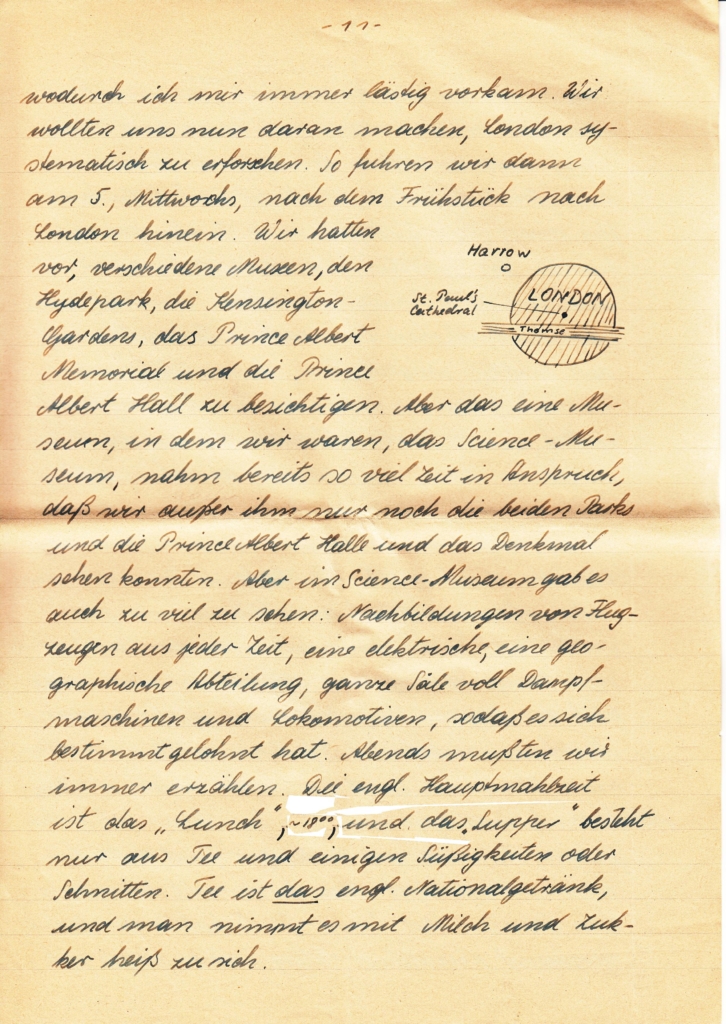 - 11 -
wodurch ich mir immer lästig vorkam. Wir
wollten uns nun daran machen, London sy-
stematisch zu erforschen. So fuhren wir dann
am 5., Mittwochs, nach dem Frühstück nach
London hinein. Wir hatten
vor, verschiedene Museen, den
Hydepark, die Kensington-
Gardens, das Prince Albert
Memorial und die Prince
Harrow
LONDON
St. Paul's
Cathedral
Themse
Albert Hall zu besichtigen. Aber das eine Mu-
seum, in dem wir waren, das Science-Mu-
seum, nahm bereits so viel Zeit in Anspruch,
daß wir außer ihm nur noch die beiden Parks
und die Prince Albert Halle und das Denkmal
sehen konnten. Aber im Science-Museum gab es
auch zu viel zu sehen: Nachbildungen von Flug-
zeugen aus jeder Zeit, eine elektrische, eine geo-
graphische Abteilung, ganze Säle voll Dampf-
maschinen und Lokomotiven, sodaß es sich
bestimmt gelohnt hat. Abends mußten wir
immer erzählen. Die engl. Hauptmahlzeit
ist das „Lunch", ~18⁰⁰, und das „Supper" besteht
nur aus Tee und einigen Süßigkeiten oder
Schnitten. Tee ist das engl. Nationalgetränk,
und man nimmt es mit Milch und Zuk-
ker heiß zu sich.